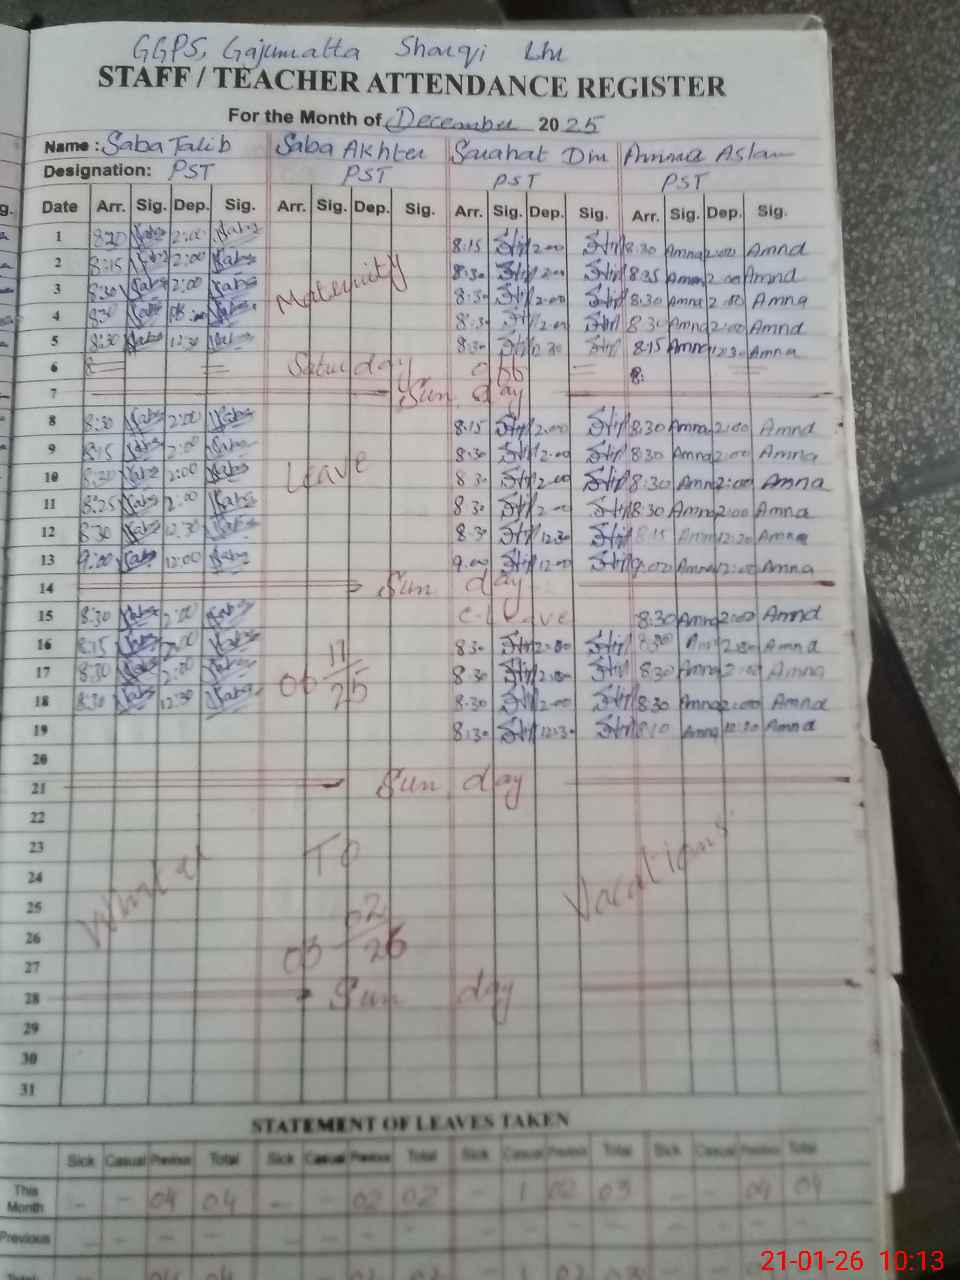 GGPS, Gajumatta Sharqi Lhr
STAFF / TEACHER ATTENDANCE REGISTER
For the Month of December 2025
Name : Saba Talib Saba Akhter Sarahat Din Amna Aslam
Designation: PST PST PST PST
Date Arr. Sig. Dep. Sig. Arr. Sig. Dep. Sig. Arr. Sig. Dep. Sig. Arr. Sig. Dep. Sig.
1 8:20 Saba 2:00 Saba 8:15 2:00 8:30 Amna 2:00 Amna
2 8:15 Saba 2:00 Saba Maternity 8:30 2:00 8:35 Amna 2:00 Amna
3 8:30 Saba 2:00 Saba 8:30 2:00 8:30 Amna 2:00 Amna
4 8:30 Saba Saba 8:30 2:00 8:30 Amna 2:00 Amna
5 8:30 Saba 12:30 Saba 8:30 12:30 8:15 Amna 12:30 Amna
6 Saturday off 8:
7 Sunday
8 8:30 Saba 2:00 Saba 8:15 2:00 8:30 Amna 2:00 Amna
9 8:15 Saba 2:00 Saba 8:30 2:00 8:30 Amna 2:00 Amna
10 8:30 Saba 2:00 Saba Leave 8:30 2:00 8:30 Amna 2:00 Amna
11 8:25 Saba 2:00 Saba 8:30 2:00 8:30 Amna 2:00 Amna
12 8:30 Saba 12:30 Saba 8:30 12:30 8:15 Amna 12:30 Amna
13 9:00 Saba 12:00 Saba 9:00 12:00 9:00 Amna 12:00 Amna
14 Sunday
15 8:30 Saba 2:00 Saba C-Leave 8:30 Amna 2:00 Amna
16 8:15 Saba 2:00 Saba 8:30 2:00 8:30 Amna 2:00 Amna
17 8:30 Saba 2:00 Saba 06 11/25 8:30 2:00 8:30 Amna 2:00 Amna
18 8:30 Saba 12:30 Saba 8:30 2:00 8:30 Amna 2:00 Amna
19 8:30 12:30 8:10 Amna 12:30 Amna
20
21 Sunday
22
23 To
24 Winter Vacations
25
26 03 02/26
27
28 Sunday
29
30
31
STATEMENT OF LEAVES TAKEN
Sick Casual Previous Total Sick Casual Previous Total Sick Casual Previous Total Sick Casual Previous Total
This Month - - 04 04 - - 02 02 - 1 02 03 - - 04 04
Previous - - - - - - - - - - - -
21-01-26 10:13